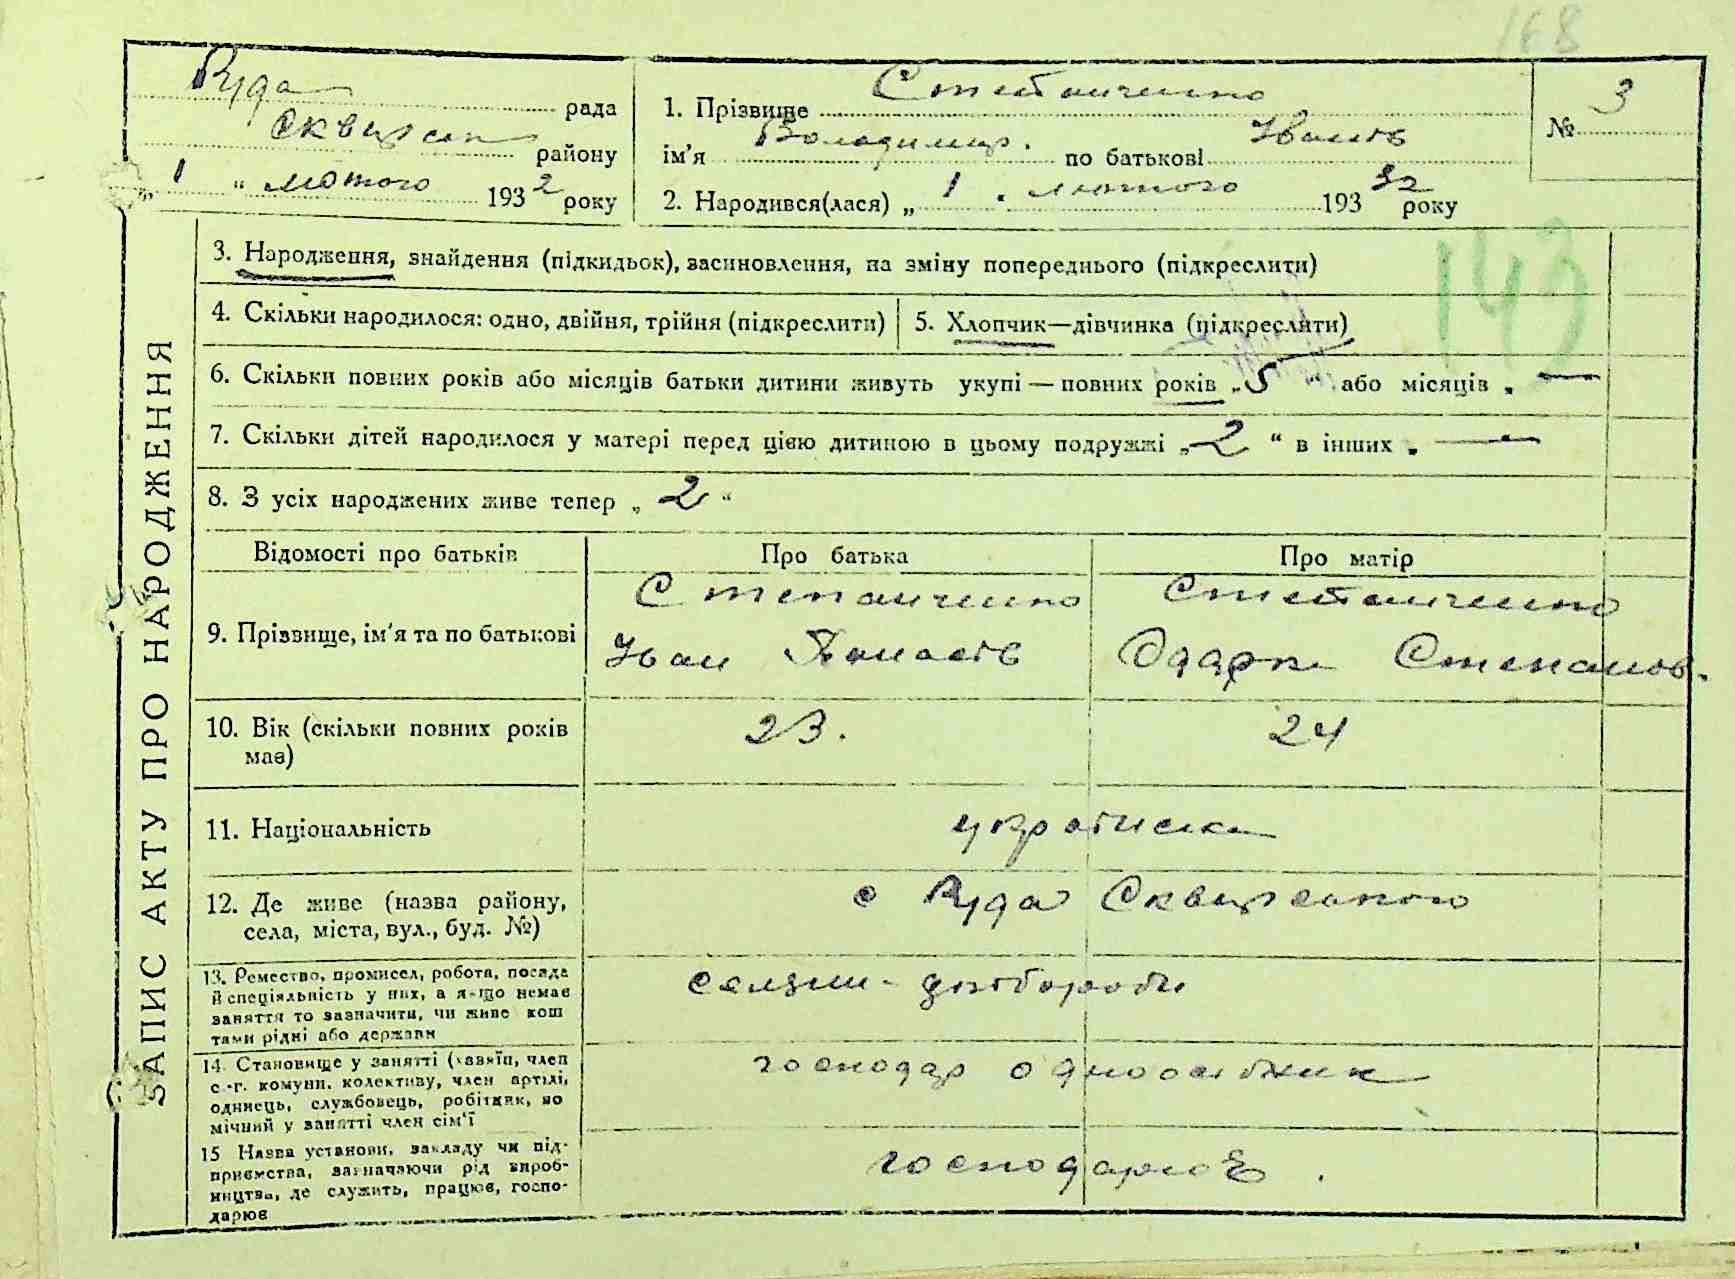 168
Руда рада
Сквирськ району
„ 1 " лютого 1932 року
1. Прізвище Степанченко
ім'я Володимир. по батькові Іванів
2. Народився(лася) „ 1 . лютого 193 32 року
№ 3
143
ЗАПИС АКТУ ПРО НАРОДЖЕННЯ
3. Народження, знайдення (підкидьок), засиновлення, на зміну попереднього (підкреслити)
4. Скільки народилося: одно, двійня, трійня (підкреслити)
5. Хлопчик—дівчинка (підкреслити)
6. Скільки повних років або місяців батьки дитини живуть укупі — повних років „5" або місяців „ —
7. Скільки дітей народилося у матері перед цією дитиною в цьому подружжі „2" в інших „ —
8. З усіх народжених живе тепер „ 2 "
Відомості про батьків
Про батька
Про матір
9. Прізвище, ім'я та по батькові
Степанченко
Іван Панасів
Степанченко
Одарка Степанов.
10. Вік (скільки повних років
має)
23.
24
11. Національність
українська
12. Де живе (назва району,
села, міста, вул., буд. №)
с Руда Сквирського
13. Ремество, промисел, робота, посада
й спеціяльність у них, а якщо немає
заняття то зазначити, чи живе кош
тами рідні або держави
селяни - хлібороби
14. Становище у занятті (хазяїн, член
с.-г. комуни, колективу, член артілі,
одинець, службовець, робітник, по
мічний у занятті член сім'ї
господар одноосібник
15 Назва установи, закладу чи під-
приємства, зазначаючи рід вироб-
ництва, де служить, працює, госпо-
дарює
господарює .